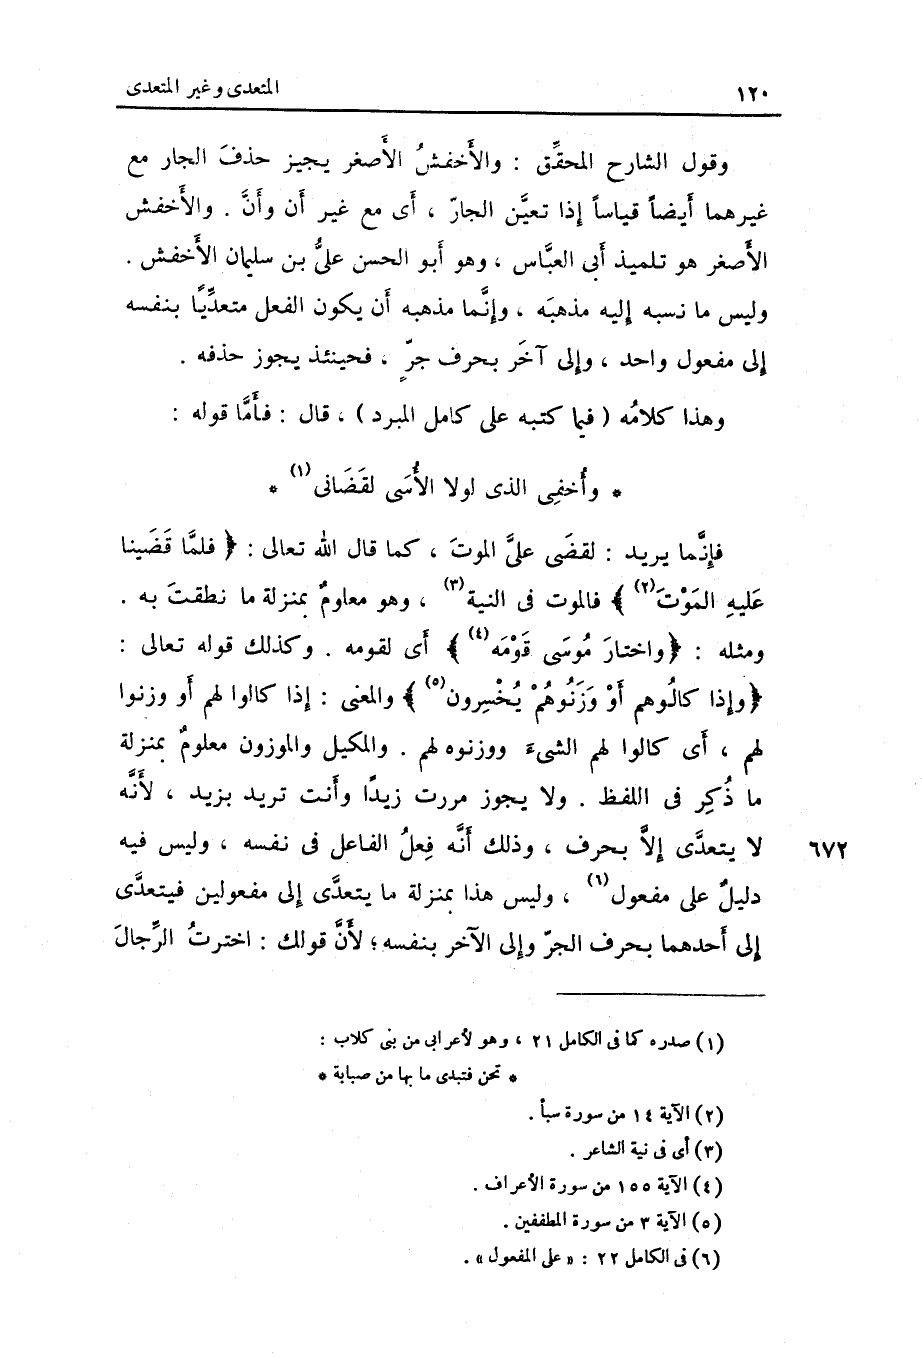 ١٢٠ المتعدى وغير المتعدى
وقول الشارح المحقِّق : والأَخفشُ الأَصغر يجيز حذفَ الجار مع
غيرهما أيضاً قياساً إذا تعيَّن الجارّ ، أى مع غير أن وأنَّ . والأَخفش
الأَصغر هو تلميذ أبى العبَّاس ، وهو أبو الحسن علىُّ بن سليمان الأَخفش .
وليس ما نسبه إليه مذهبَه ، وإنَّما مذهبه أن يكون الفعل متعدِّيًا بنفسه
إلى مفعول واحد ، وإلى آخَر بحرف جرٍّ ، فحينئذ يجوز حذفه .
وهذا كلامُه ( فيما كتبه على كامل المبرد ) ، قال : فأَمَّا قوله :
* وأُخفِى الذى لولا الأُسَى لقَضَانى(١) *
فإِنَّما يريد : لقضَى علىَّ الموتَ ، كما قال الله تعالى : ﴿ فلمَّا قَضَينا
عَليهِ المَوْتَ(٢) ﴾ فالموت فى النية(٣) ، وهو معلومٌ بمنزلة ما نطقتَ به .
ومثله : ﴿واختارَ مُوسَى قَوْمَه(٤) ﴾ أى لقومه . وكذلك قوله تعالى :
﴿وإذا كالُوهم أوْ وَزَنُوهُمْ يُخْسِرون(٥) ﴾ والمعنى : إذا كالوا لهم أو وزنوا
لهم ، أى كالوا لهم الشىءَ ووزنوه لهم . والمكيل والموزون معلومٌ بمنزلة
ما ذُكِر فى اللفظ . ولا يجوز مررت زيدًا وأنت تريد بزيد ، لأَنَّه
لا يتعدَّى إلاَّ بحرف ، وذلك أنَّه فِعلُ الفاعل فى نفسه ، وليس فيه ٦٧٢
دليلٌ على مفعول(٦) ، وليس هذا بمنزلة ما يتعدَّى إلى مفعولين فيتعدَّى
إلى أحدهما بحرف الجرّ وإلى الآخر بنفسه؛ لأَنَّ قولك : اخترتُ الرِّجالَ
(١) صدره كما فى الكامل ٢١ ، وهو لأعرابى من بنى كلاب :
* تحن فتبدى ما بها من صبابة *
(٢) الآية ١٤ من سورة سبأ .
(٣) أى فى نية الشاعر .
(٤) الآية ١٥٥ من سورة الأعراف .
(٥) الآية ٣ من سورة المطففين .
(٦) فى الكامل ٢٢ : « على المفعول » .